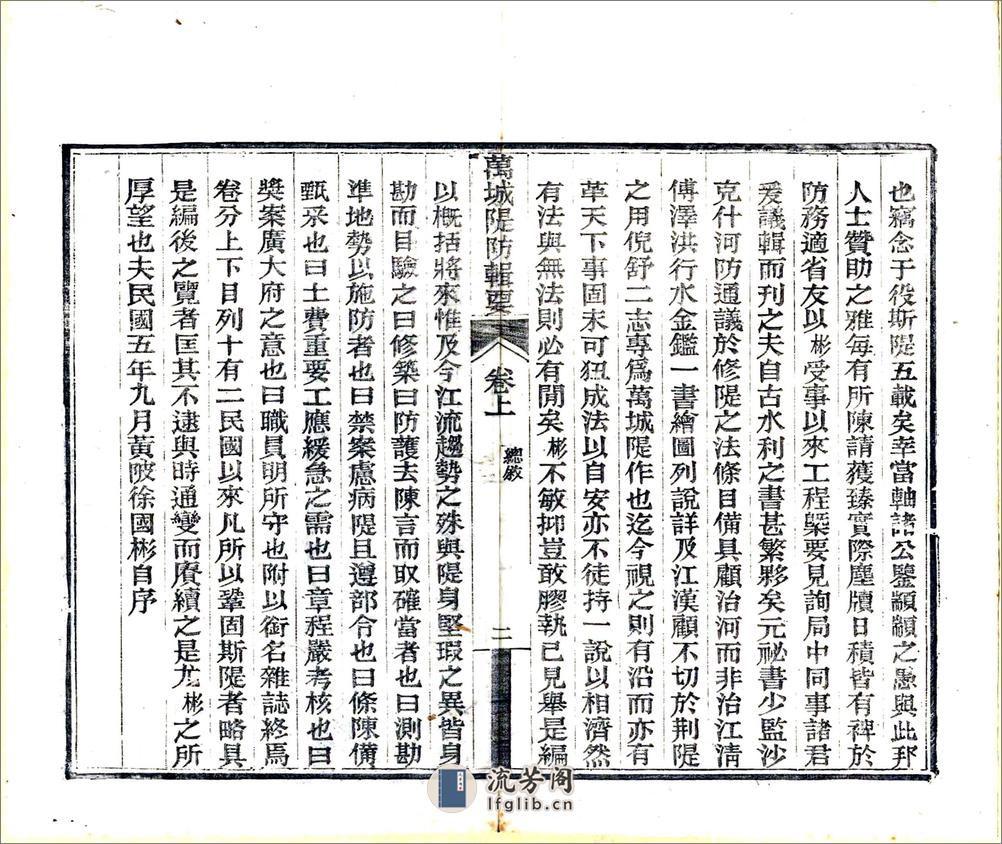 也竊念于役斯隄五載矣幸當軸諸公鑒顓顓之愚與此邦
人士贊助之雅每有所陳請獲臻實際塵牘日積皆有裨於
防務適省友以彬受事以來工程槼要見詢局中同事諸君
爰議輯而刊之夫自古水利之書甚繁夥矣元祕書少監沙
克什河防通議於修隄之法條目備具顧治河而非治江淸
傅澤洪行水金鑑一書繪圖列說詳及江漢顧不切於荆隄
之用倪舒二志專爲萬城隄作也迄今視之則有沿而亦有
革天下事固未可狃成法以自安亦不徒持一說以相濟然
有法與無法則必有閒矣彬不敏抑豈敢膠執己見舉是編
萬城隄防輯要 卷上 總敍 二
以概括將來惟及今江流趨勢之殊與隄身堅瑕之異皆身
勘而目驗之曰修築曰防護去陳言而取確當者也曰測勘
準地勢以施防者也曰禁案慮病隄且遵部令也曰條陳備
甄采也曰土費重要工應緩急之需也曰章程嚴考核也曰
奬案廣大府之意也曰職員明所守也附以銜名雜誌終焉
卷分上下目列十有二民國以來凡所以鞏固斯隄者略具
是編後之覽者匡其不逮與時通變而賡續之是尤彬之所
厚望也夫民國五年九月黃陂徐國彬自序
流芳阁
lfglib.cn